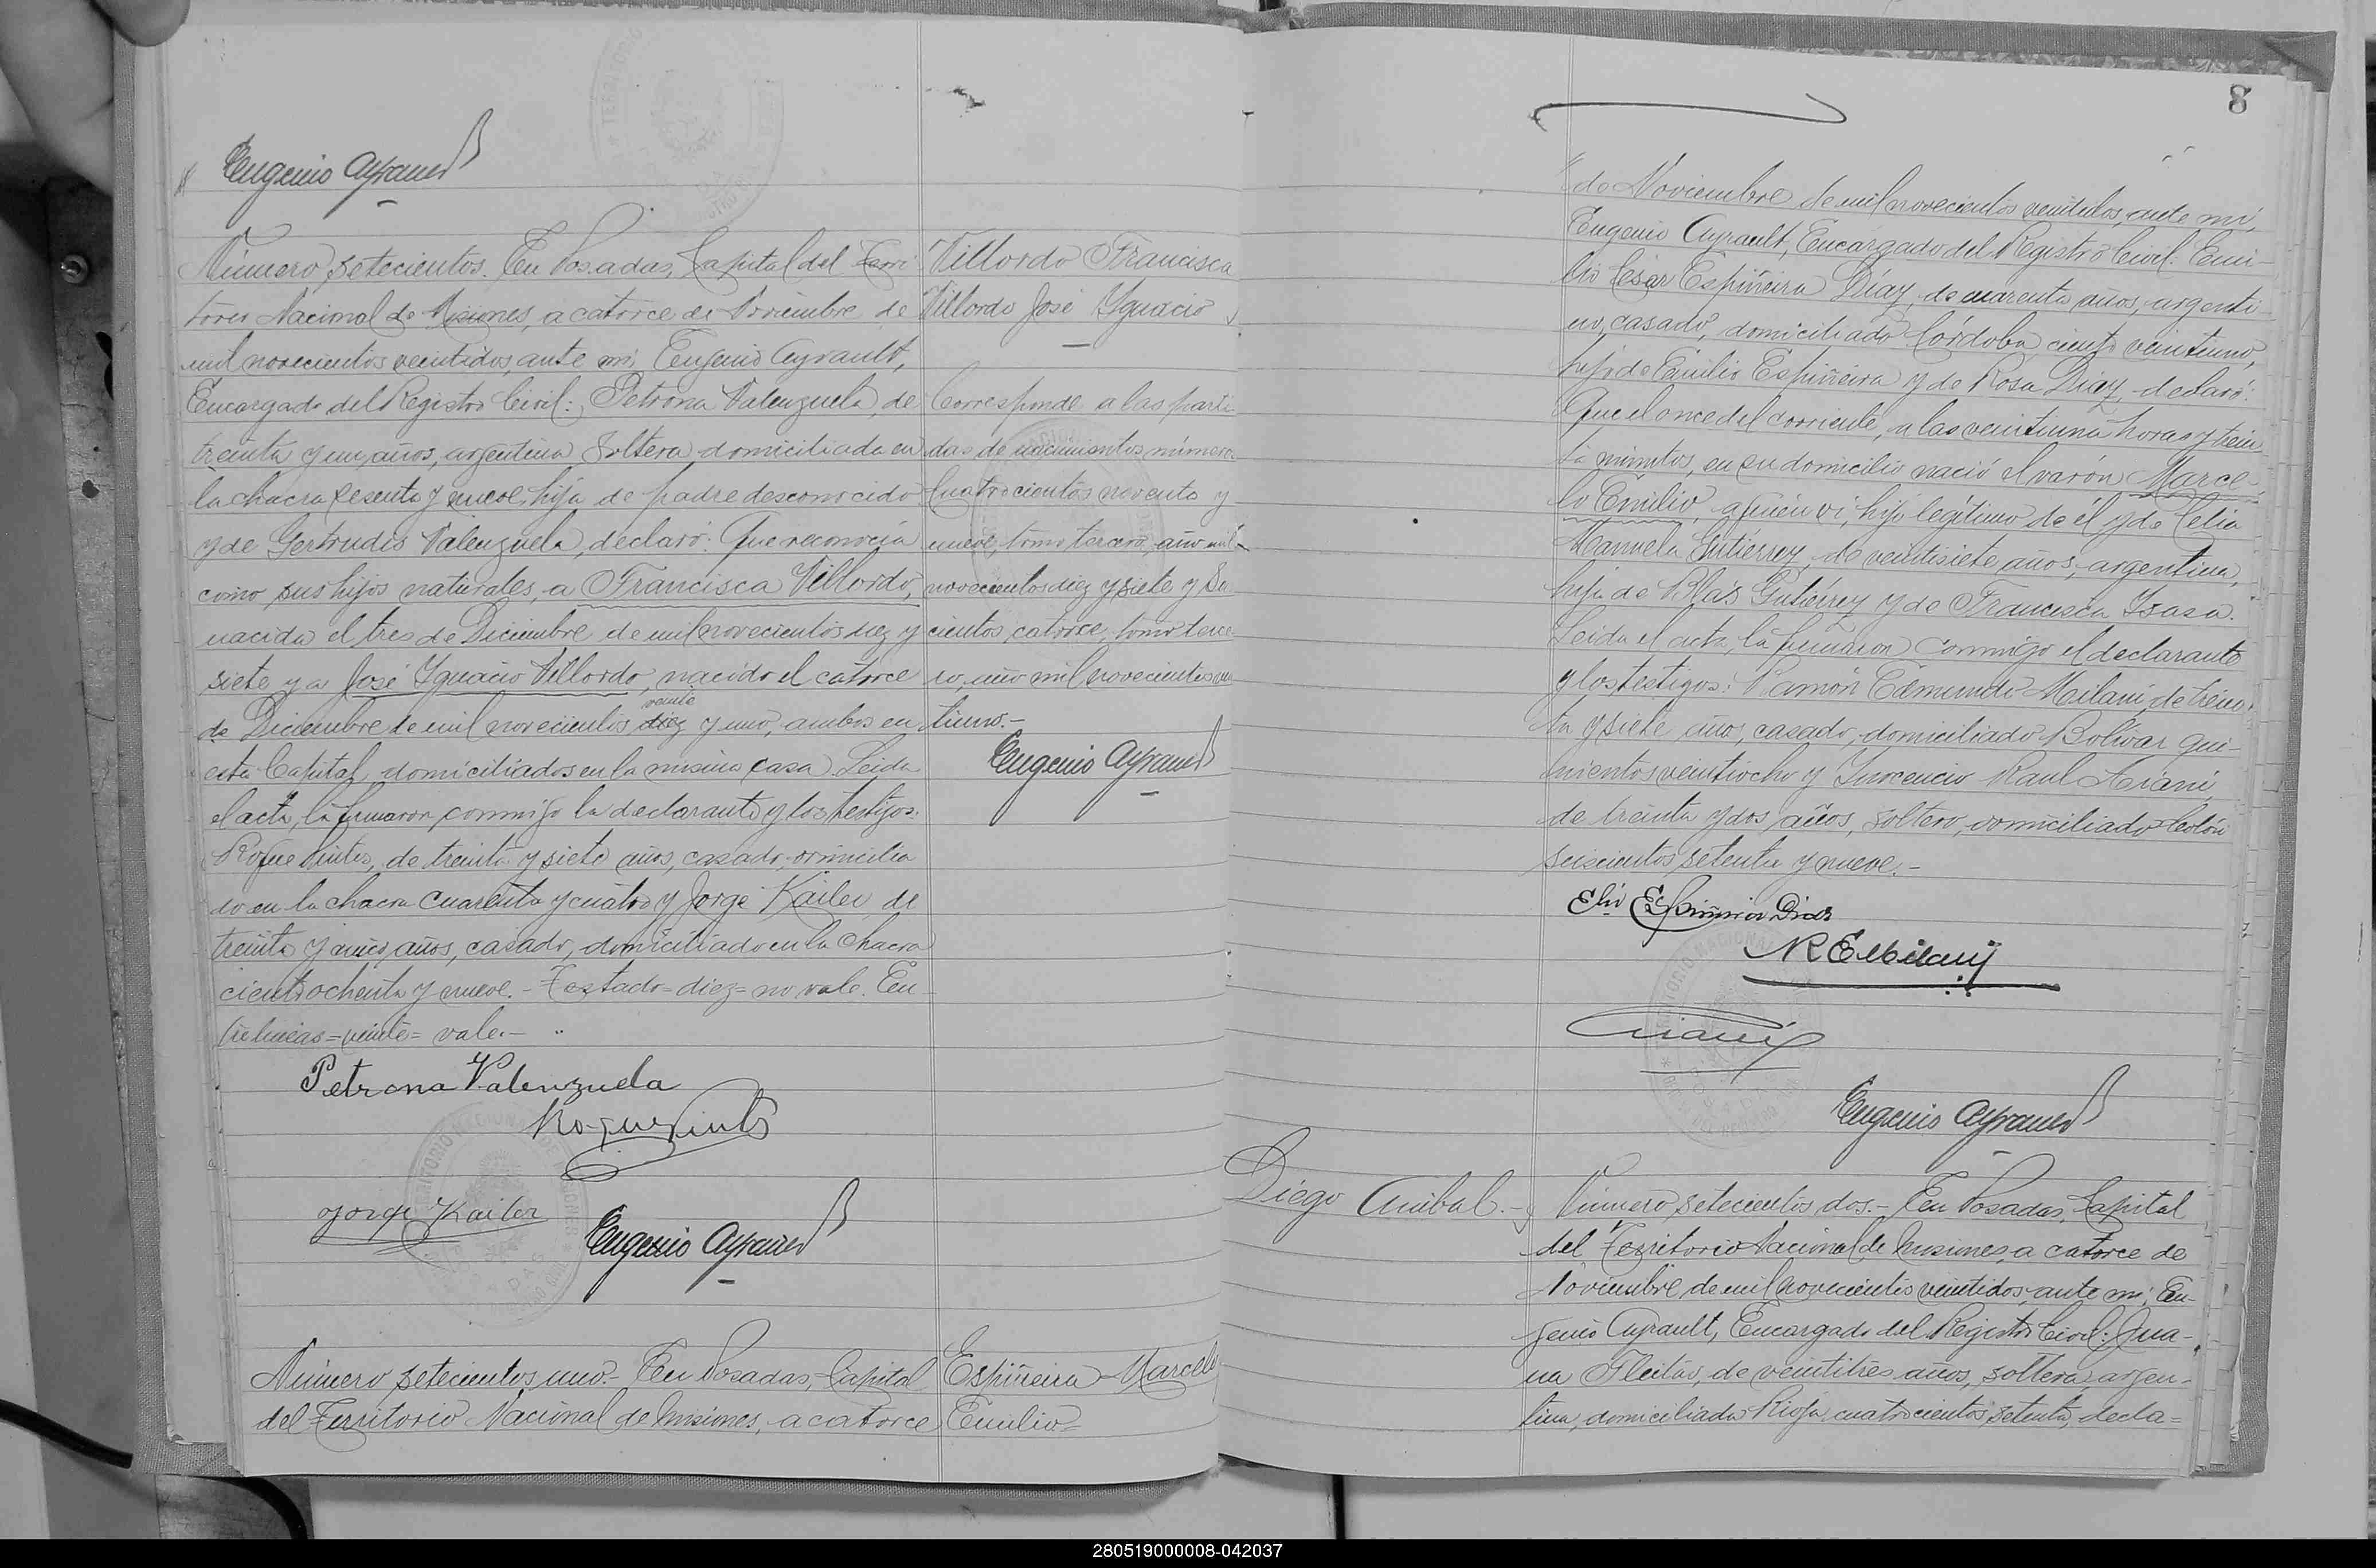 Eugenio Ayrault
Número setecientos. En Posadas, Capital del Terri
torio Nacional de Misiones, a catorce de Noviembre de
mil novecientos veintidos, ante mi, Eugenio Ayrault,
Encargado del Registro Civil: Petrona Valenzuela, de
treinta y un años, argentina, soltera domiciliada en
la chacra sesenta y nueve, hija de padre desconocido
y de Gertrudis Valenzuela, declaró: Que reconocía
como sus hijos naturales, a Francisca Villordo,
nacida el tres de Diciembre de mil novecientos diez y
siete y a José Ygnacio Villordo, nacido el catorce
veinte
de Diciembre de mil novecientos diez y uno, ambos en
esta Capital, domiciliados en la misma casa. Leida
el acta, la firmaron conmigo la declarante y los testigos:
Roque Pintos, de treinta y siete años, casado, domicilia
do en la chacra cuarenta y cuatro y Jorge Kailer, de
treinta y cinco años, casado, domiciliado en la chacra
ciento ochenta y nueve.- Testado=diez=no vale. En-
trelineas=veinte=vale.-
Petrona Valenzuela
Roque Pintos
Jorge Kailer
Eugenio Ayrault
Villordo Francisca
Villordo José Ygnacio
Corresponde a las parti
das de nacimientos números
Cuatrocientos noventa y
nueve, tomo tercero, año mil
novecientos diez y siete y Do
cientos catorce, tomo terce
ro, año mil novecientos vein
tiuno.-
Eugenio Ayrault
Número setecientos uno.- En Posadas, Capital
del Territorio Nacional de Misiones, a catorce
Espiñeira Marcelo
Emilio=
8
de Noviembre de mil novecientos veintidos, ante mi,
Eugenio Ayrault, Encargado del Registro Civil: Emi-
lio César Espiñeira Díaz, de cuarenta años, argenti-
no, casado, domiciliado Córdoba ciento veintiuno,
hijo de Emilio Espiñeira y de Rosa Díaz, declaró:
Que el once del corriente, a las veintiuna horas y trein
ta minutos, en su domicilio nació el varón Marce-
lo Emilio, a quien vi, hijo legítimo de él y de Celia
Manuela Gutiérrez, de veintisiete años, argentina,
hija de Blás Gutiérrez y de Francisca Ysasa.
Leida el acta, la firmaron conmigo el declarante
y los testigos: Ramón Edmundo Milani, de trein
ta y siete años, casado, domiciliado Bolívar qui-
nientos veintiocho y Inocencio Raul
de treinta y dos años, soltero, domiciliado Colón
seiscientos setenta y nueve.-
Espiñeira Diaz
R E Milani
Eugenio Ayrault
Diego Anibal.-
Número setecientos dos.- En Posadas, Capital
del Territorio Nacional de Misiones, a catorce de
Noviembre de mil novecientos veintidos, ante mi, Eu-
genio Ayrault, Encargado del Registro Civil: Jua-
na Fleitas, de veintitrés años, soltera, argen-
tina, domiciliada Rioja cuatrocientos setenta, decla=
280519000008-042037